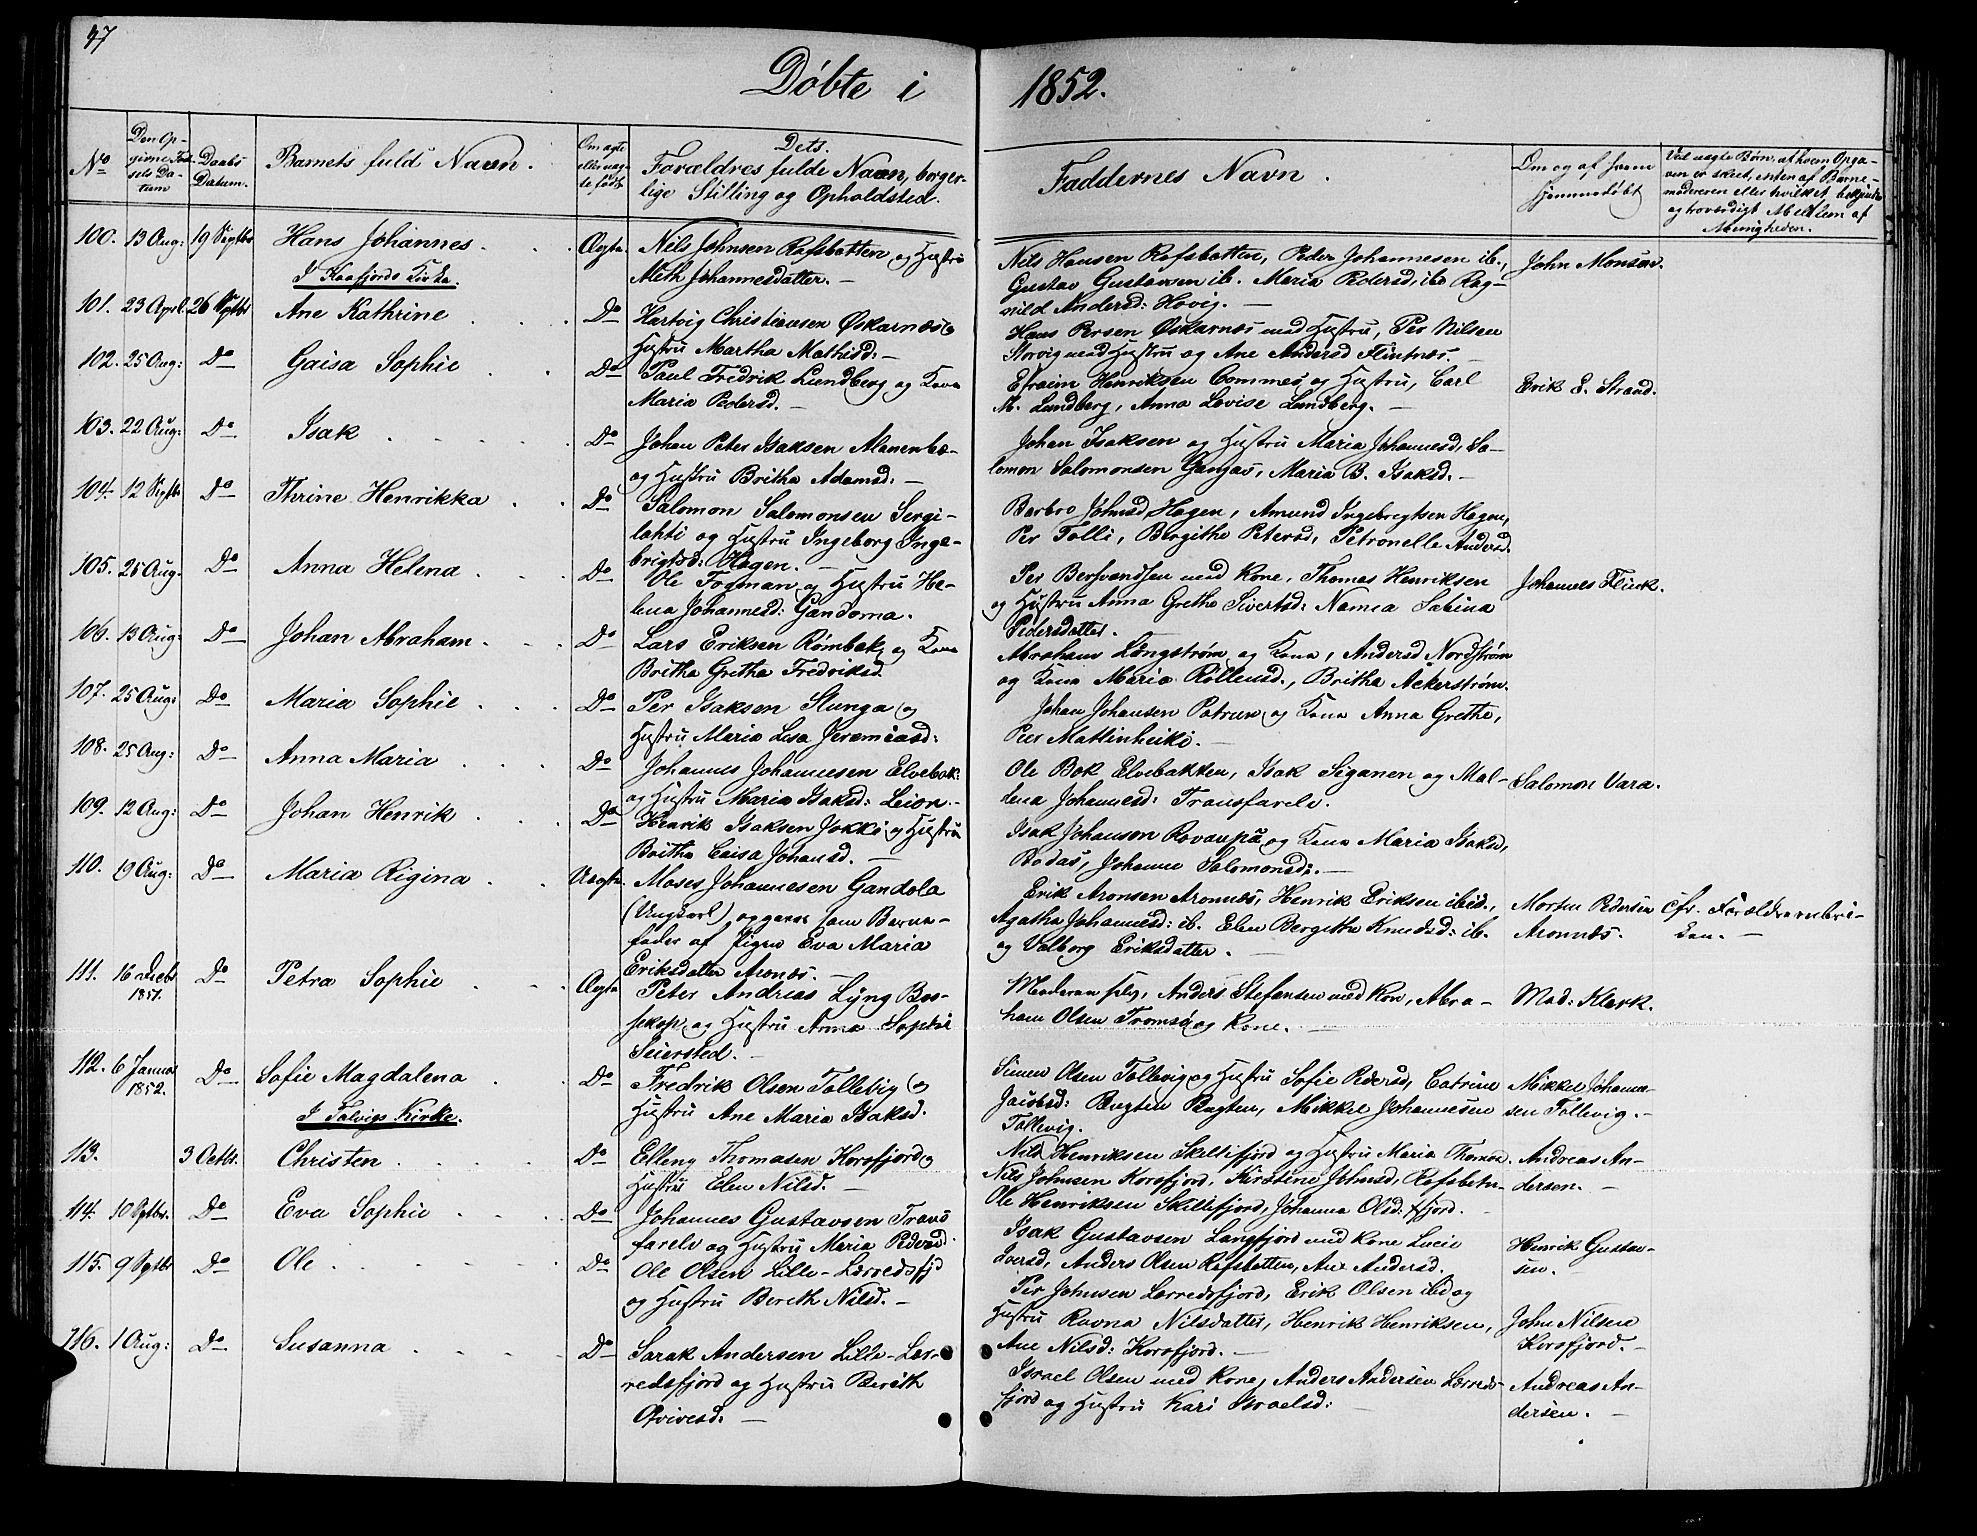 97
Døbte i 1852.
No
Den Op-
givne Fød-
sels Da-
tum
Daabs
Datum.
Barnets fuld Navn.
Om ægte
eller uæg-
te født
Dets
Forældres fulde Navn, borger-
lige Stilling og Opholdsted.
Faddernes Navn.
Om og af hvem
hjemmedøbt
Ved uægte Børn, af hvem Opga-
ven er skeet, enten af Barne-
moderen eller hvilket bekjendt
og troværdigt Medlem af
Menigheden.
100. 13 Aug: 19 Septbr Hans Johannes. Ægte
Nils Johnsen Rafsbotten og Hustru
Meth Johannesdatter.
Nils Hansen Rafsbotten, Peder Johannesen ib.,
Gustav Gustavsen ib. Maria Pedersd, ibd Rag-
nild Andersd: Hovig.
John Monsen.
I Kaafjords Kirke.
101. 23 April 26 Septbr Ane Kathrine Do
Hartvig Christiansen Øskarnæs og
Hustru Martha Mathisd:
Hans Persen Øskarnæs med Hustru, Per Nilsen
Storvig med Hustru og Ane Andersd Flintnæs.
102. 25 Aug: Do Gaisa Sophie Do
Paul Fredrik Lundberg og Kone
Maria Pedersd.
Efraim Henriksen Commes og Hustru, Carl
M. Lundberg, Anna Lovise Lundberg.
Erik E. Strand.
103. 22 Aug: Do Isak Do
Johan Peter Isaksen Manenbæ-
og Hustru Britha Adamsd.
Johan Isaksen og Hustru Maria Johannesd, Sa-
lomon Salomonsen Gangas, Maria B. Isaksd.
104. 12 Septbr Do Thrine Henrikka Do
Salomon Salomonsen Sergi-
lahti og Hustru Ingeborg Inge-
brigtsd: Hagen.
Barbro Johnsd, Hagen, Amund Ingebregtsen Hagen,
Per Tolli, Bergithe Petersd, Petronelle Andersd.
105. 25 Aug. Do Anna Helena Do
Ole Fogman og Hustru He-
lena Johannesd: Gandorna.
Per Bersvendsen med Kone, Thomas Henriksen
og Hustru Anna Grethe Sivertsd: Namea Sabina
Pedersdatter.
Johannes Flink.
106. 13 Aug: Do Johan Abraham. Do
Lars Eriksen Rombak og Kone
Britha Gretha Fredriksd.
Abraham Lingstrøm og Kone, Andersd Nordstrøm
og Kone Maria Rollensd., Britha Ackerstrøm.
107. 25 Aug: Do Maria Sophie Do
Per Isaksen Slunga og
Hustru Maria Lisa Jeremiasd:
Johan Johansen Patrun og Kone Anna Grethe,
Peer Mattinheiki.
108. 25 Aug: Do Anna Maria Do
Johannes Johannesen Elvebak:
og Hustru Maria Isaksd: Leion.
Ole Bok Elvebakken, Isak Siganen og Mal-
lena Johannesd: Transfarelv.
Salomon Vara.
109. 12 Aug: Do Johan Henrik Do
Henrik Isaksen Jokki og Hustru
Britha Caisa Johansd.
Isak Johanson Rovaupä og Kone Maria Isaksd,
Bodas, Johanne Salomonsd:
110. 19 Aug: Do Maria Rigina Uægte.
Moses Johannesen Gandola
(Ungkarl), opgives som Barne-
fader af Pigen Eva Maria
Eriksdatter Aronæs.
Erik Aronsen Aronnæs, Henrik Eriksen ibid.,
Agatha Johannesd: ib. Elen Bergitha Knudsd: ib.
og Valborg Eriksdatter.
Morten Pedersen
Aronnæs.
Cfr. Forældrerubri-
ken.
111. 16 Decbr
1851. Do Petra Sophie Ægte
Peter Andreas Lyng Bos-
sekop, og Hustru Anna Sophie
Seiersted.
Moderen selv, Anders Stefansen med Kon, Abra-
ham Olsen Tromsø og Kone.
Mad: Klerk.
112. 6 Januar
1852. Do Sofie Magdalena Do
Fredrik Olsen Tollevig og
Hustru Ane Maria Isaksd.
Simen Olsen Tollevig og Hustru Sofie Pedersd, Catrine
Jacobsd: Bugten Bugten, Mikkel Johannesen
Tollevig.
Mikkel Johanne-
sen Tollevig.
I Talvigs Kirke.
113. 3 Octbr. Christen Do
Elleng Thomasen Korsfjord og
Hustru Elen Nilsd.
Nils Henriksen Skillifjord og Hustru Maria Thomæs.
Nils Johnsen Korsfjord, Kirstine Johnsd, Rafsbotn.
Ole Henriksen Skillifjord, Johanna Olsd: fjord.
Andreas An-
dersen.
114. 10 Septbr. Do Eva Sophie Do
Johannes Gustavsen Trans
farelv og Hustru Maria Pedersd.
Isak Gustavsen Langfjord med Kone Lucie
Iversd, Anders Olsen Rafsbotten, Ane Andersd.
Henrik Gustav-
sen.
115. 9 Septbr Do Ole Do
Ole Olsen Lille-Lerredsfjd
og Hustru Bereth Nilsd.
Per Johnsen Lerredsfjord, Erik Olsen ibd og
Hustru Ravna Nilsdatter, Henrik Henriksen,
Ane Nilsd: Korsfjord.
John Nilsen
Korsfjord.
116. 1 Aug: Do Susanna Do
Sarak Andersen Lille-Ler-
redsfjord og Hustru Berith
Qvivesd:
Israel Olsen med Kone, Anders Andersen Lerreds-
fjord og Hustru Kari Israelsd:
Andreas An-
dersen.